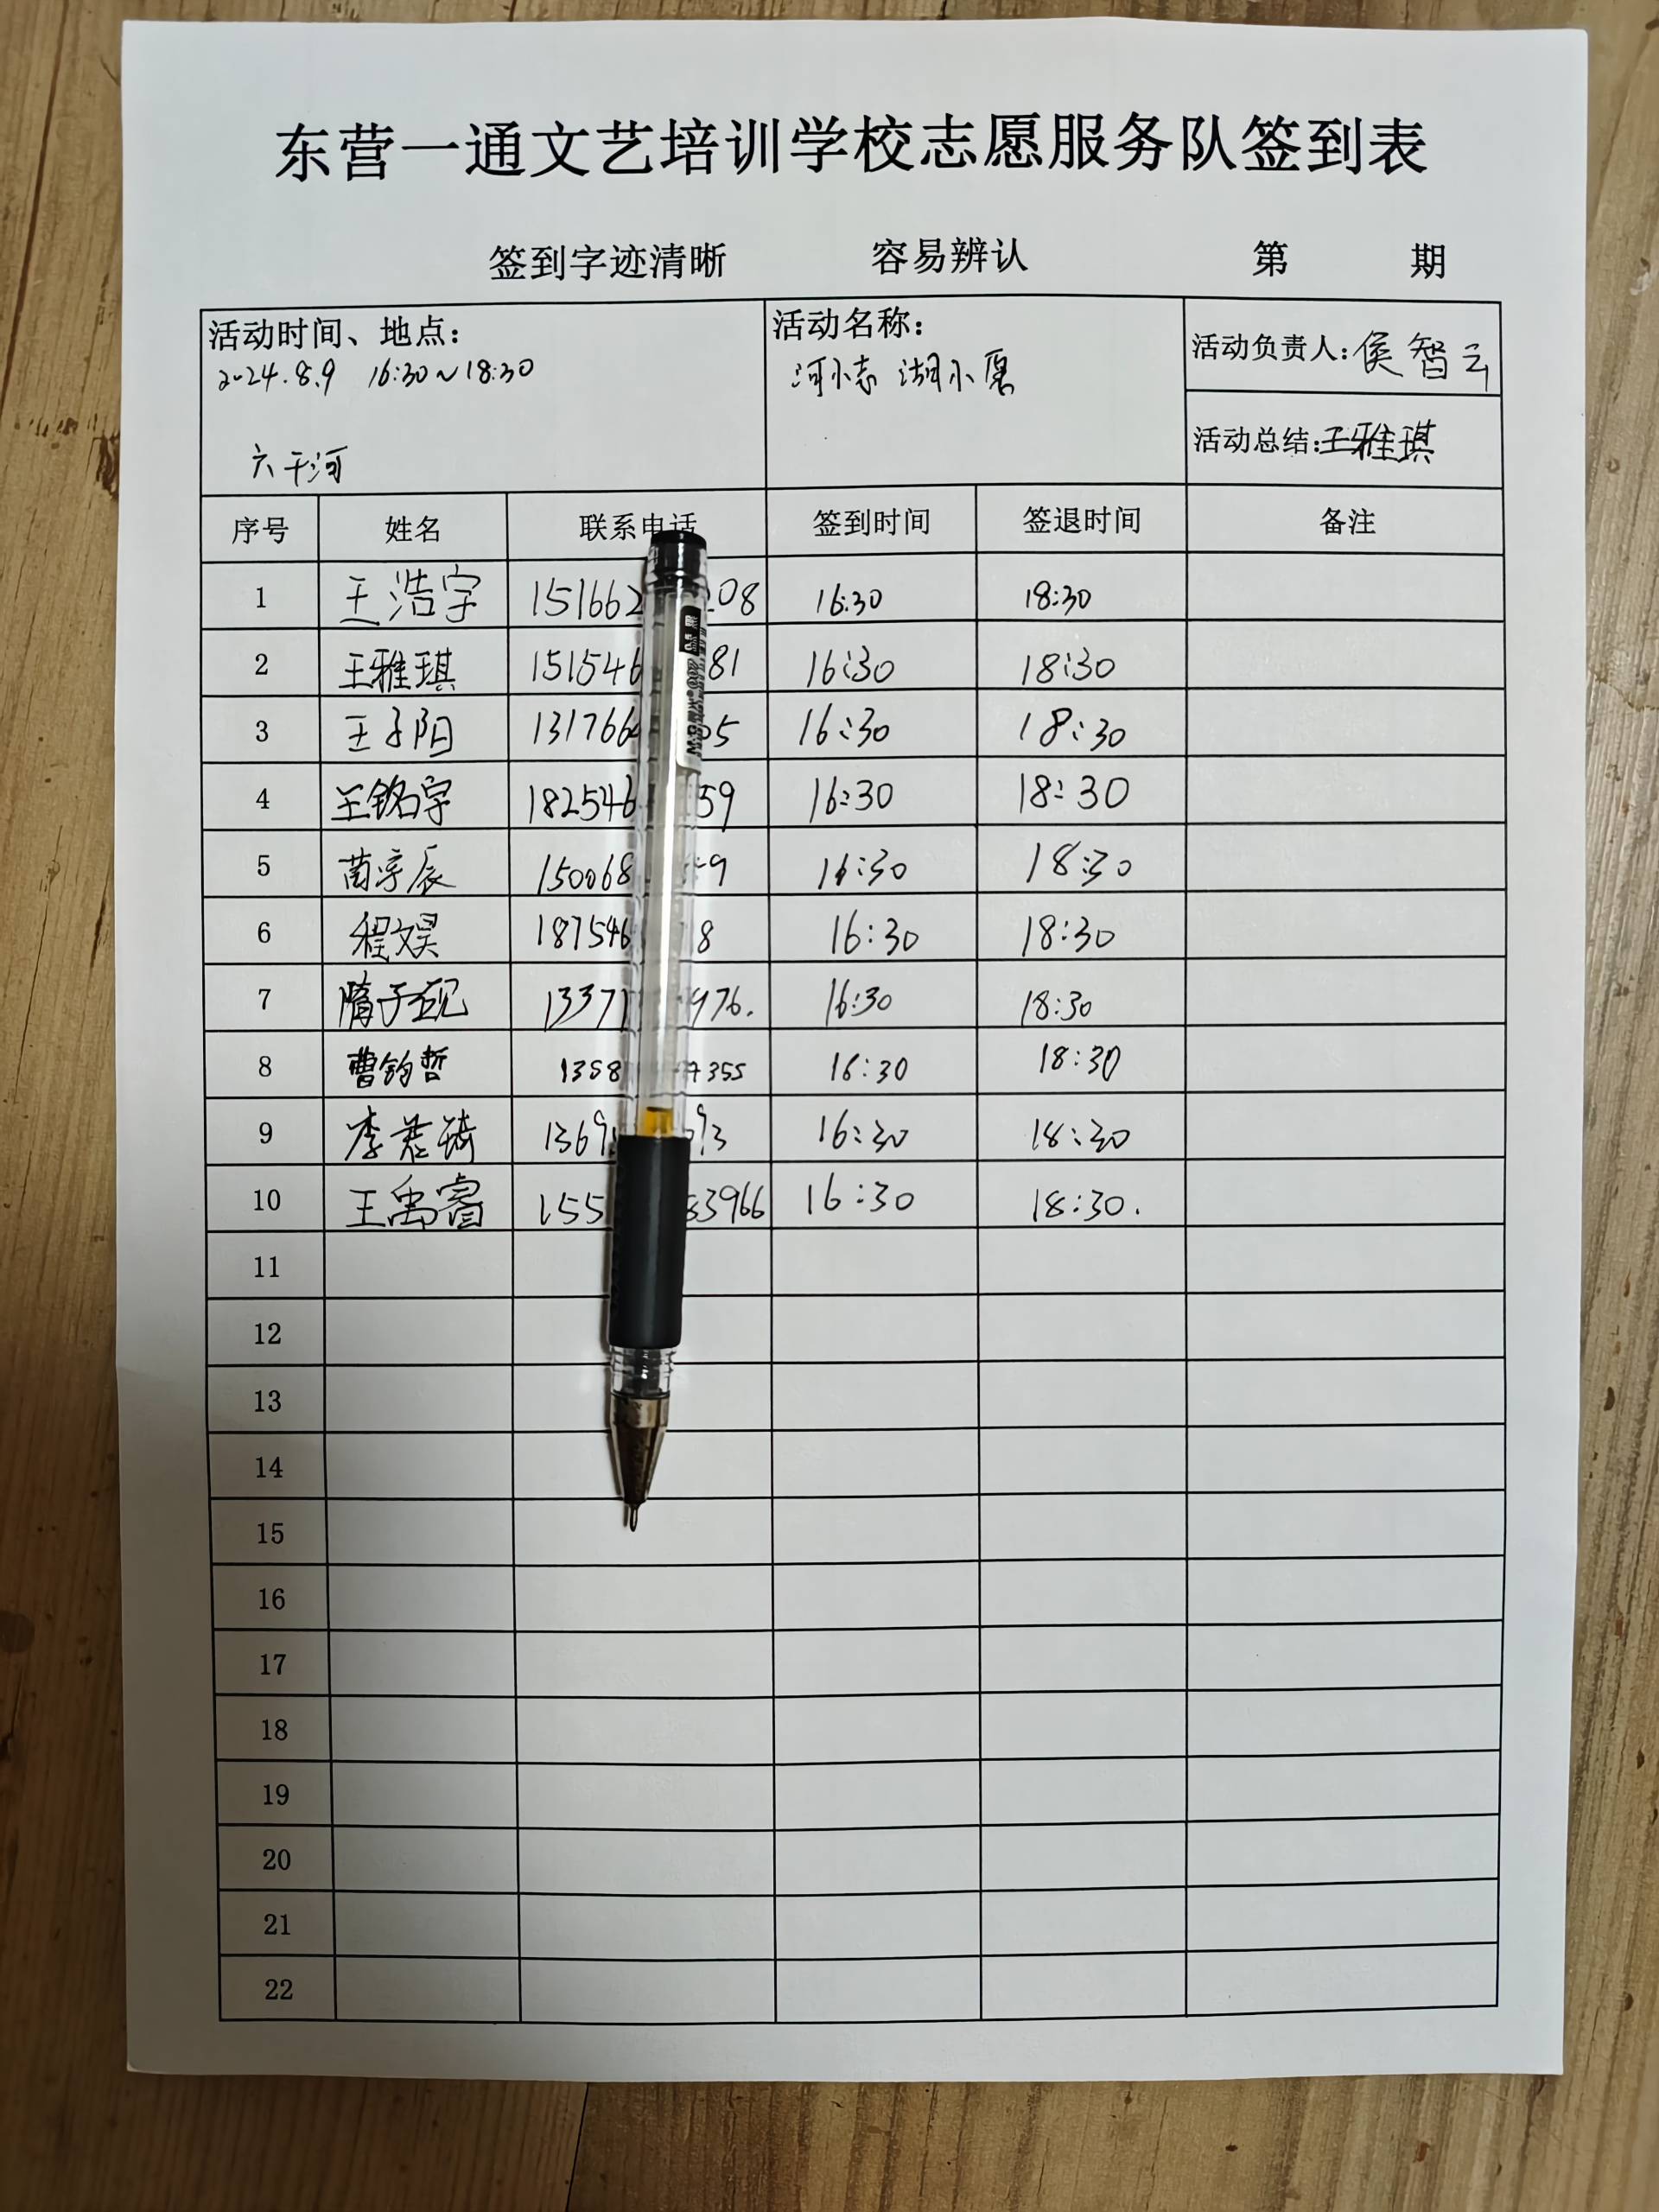 东营一通文艺培训学校志愿服务队签到表
签到字迹清晰 容易辨认 第 期
活动时间、地点：
2024.8.9 16:30~18:30
六干河
活动名称：
河小志 湖小愿
活动负责人：侯智云
活动总结：王雅琪
序号 姓名 联系电话 签到时间 签退时间 备注
1 王浩宇 151662 08 16:30 18:30
2 王雅琪 151546 81 16:30 18:30
3 王子阳 131766 05 16:30 18:30
4 王铭宇 182546 59 16:30 18:30
5 宇辰 150068 9 16:30 18:30
6 程文昊 187546 8 16:30 18:30
7 隋子砚 1337 976. 16:30 18:30
8 曹钧哲 1358 7355 16:30 18:30
9 李若琦 1369 93 16:30 18:30
10 王禹睿 155 83966 16:30 18:30.
11
12
13
14
15
16
17
18
19
20
21
22